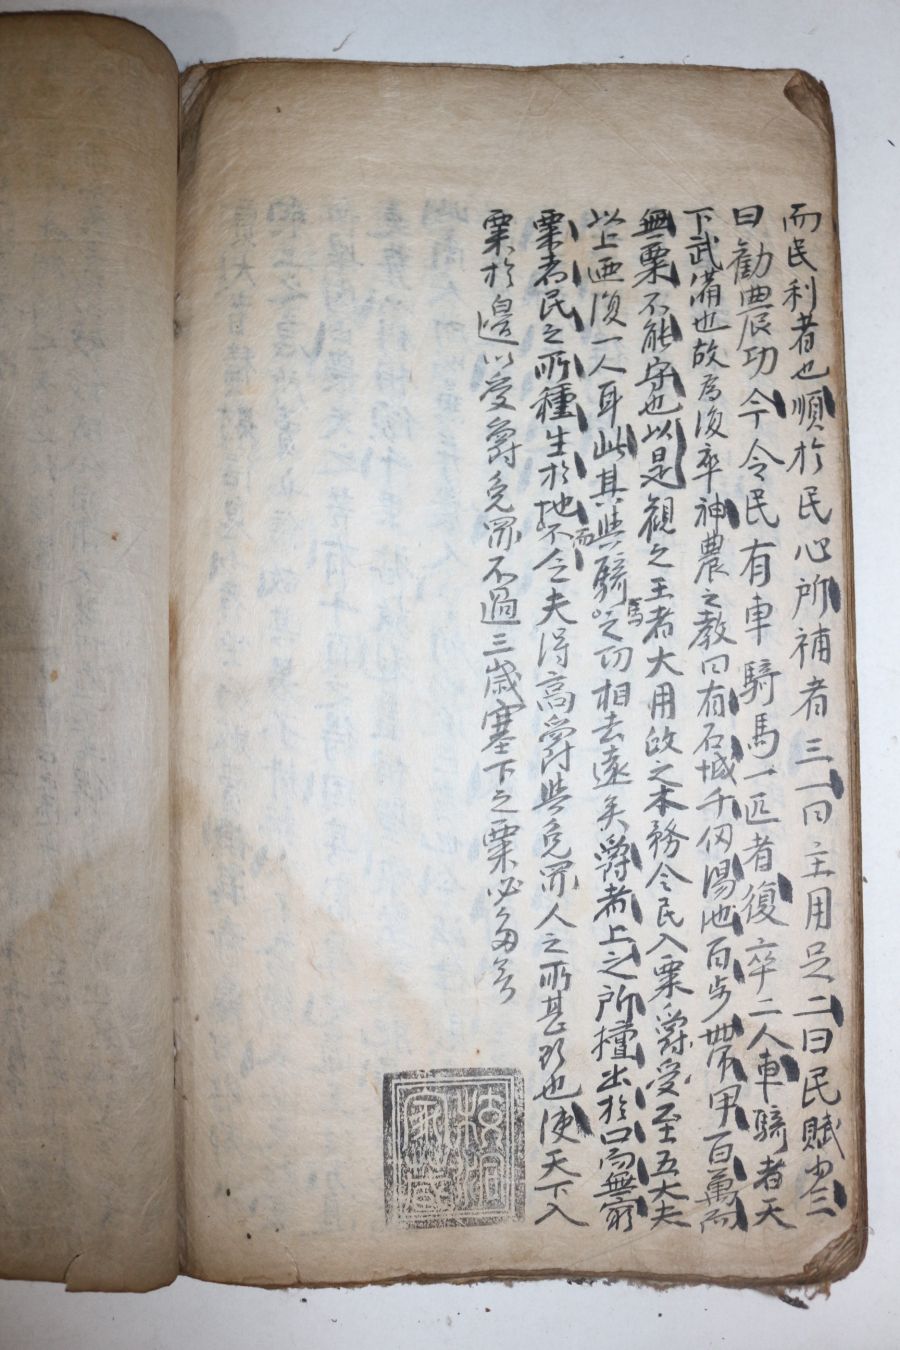 而民利者也順於民心所補者三一曰主用足二曰民賦少三
曰勸農功今令民有車騎馬一匹者復卒二人車騎者天
下武備也故為復卒神農之教曰有石城千仞湯池百步帶甲百萬而
無粟不能守也以是觀之王者大用政之本務令民入粟爵受至五大夫
以上迺復一人耳此其與騎馬之功相去遠矣爵者上之所擅出於口而無窮
粟者民之所種生於地而不乏夫得高爵與免罪人之所甚欲也使天下入
粟於邊以受爵免罪不過三歲塞下之粟必多矣
家藏